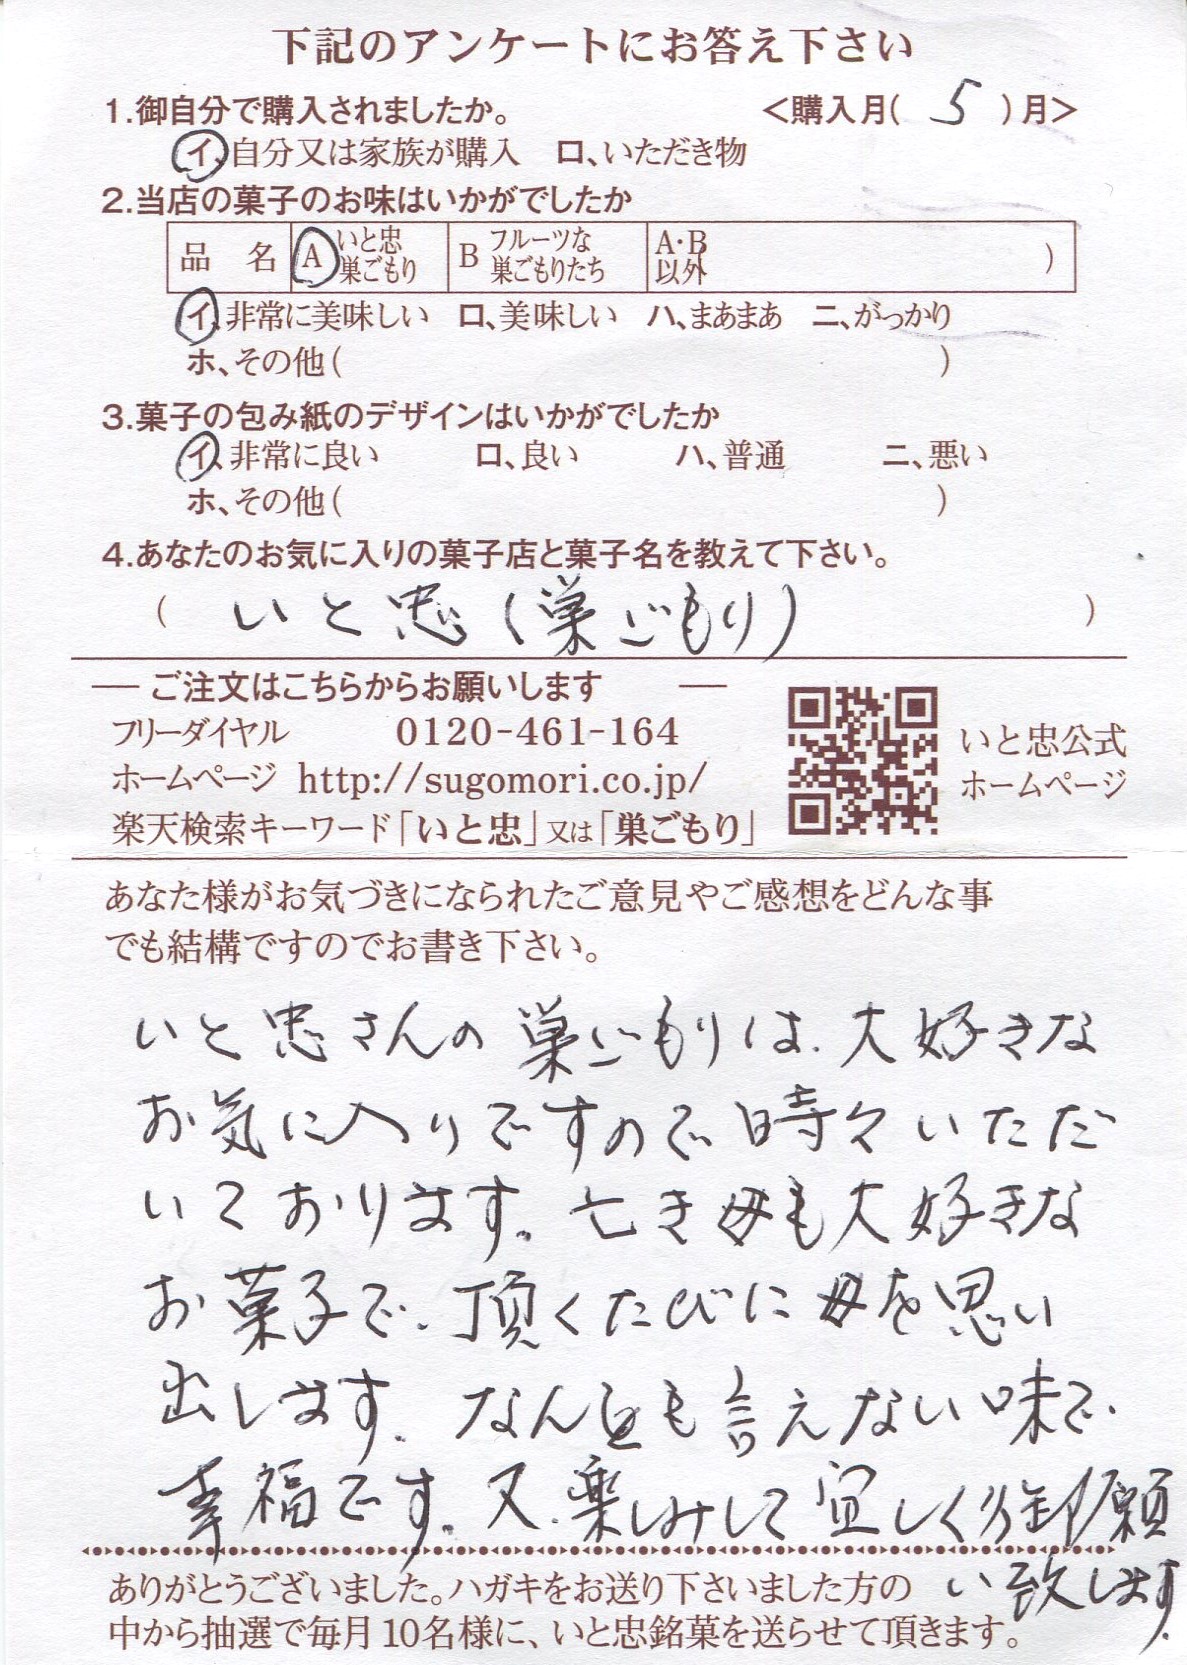 下記のアンケートにお答え下さい
1.御自分で購入されましたか。 <購入月( 5 )月>
イ、自分又は家族が購入 ロ、いただき物
2.当店の菓子のお味はいかがでしたか
品 名 A いと忠 巣ごもり B フルーツな 巣ごもりたち A・B 以外 )
イ、非常に美味しい ロ、美味しい ハ、まあまあ ニ、がっかり
ホ、その他( )
3.菓子の包み紙のデザインはいかがでしたか
イ、非常に良い ロ、良い ハ、普通 ニ、悪い
ホ、その他( )
4.あなたのお気に入りの菓子店と菓子名を教えて下さい。
( いと忠(巣ごもり) )
― ご注文はこちらからお願いします ―
フリーダイヤル 0120-461-164
ホームページ http://sugomori.co.jp/
楽天検索キーワード「いと忠」又は「巣ごもり」
いと忠公式
ホームページ
あなた様がお気づきになられたご意見やご感想をどんな事
でも結構ですのでお書き下さい。
いと忠さんの巣ごもりは、大好きな
お気に入りですので時々いただ
いております。亡き母も大好きな
お菓子で、頂くたびに母を思い
出します。なんとも言えない味で、
幸福です。又、楽しみして宜しく御願
い致します。
ありがとうございました。ハガキをお送り下さいました方の
中から抽選で毎月10名様に、いと忠銘菓を送らせて頂きます。